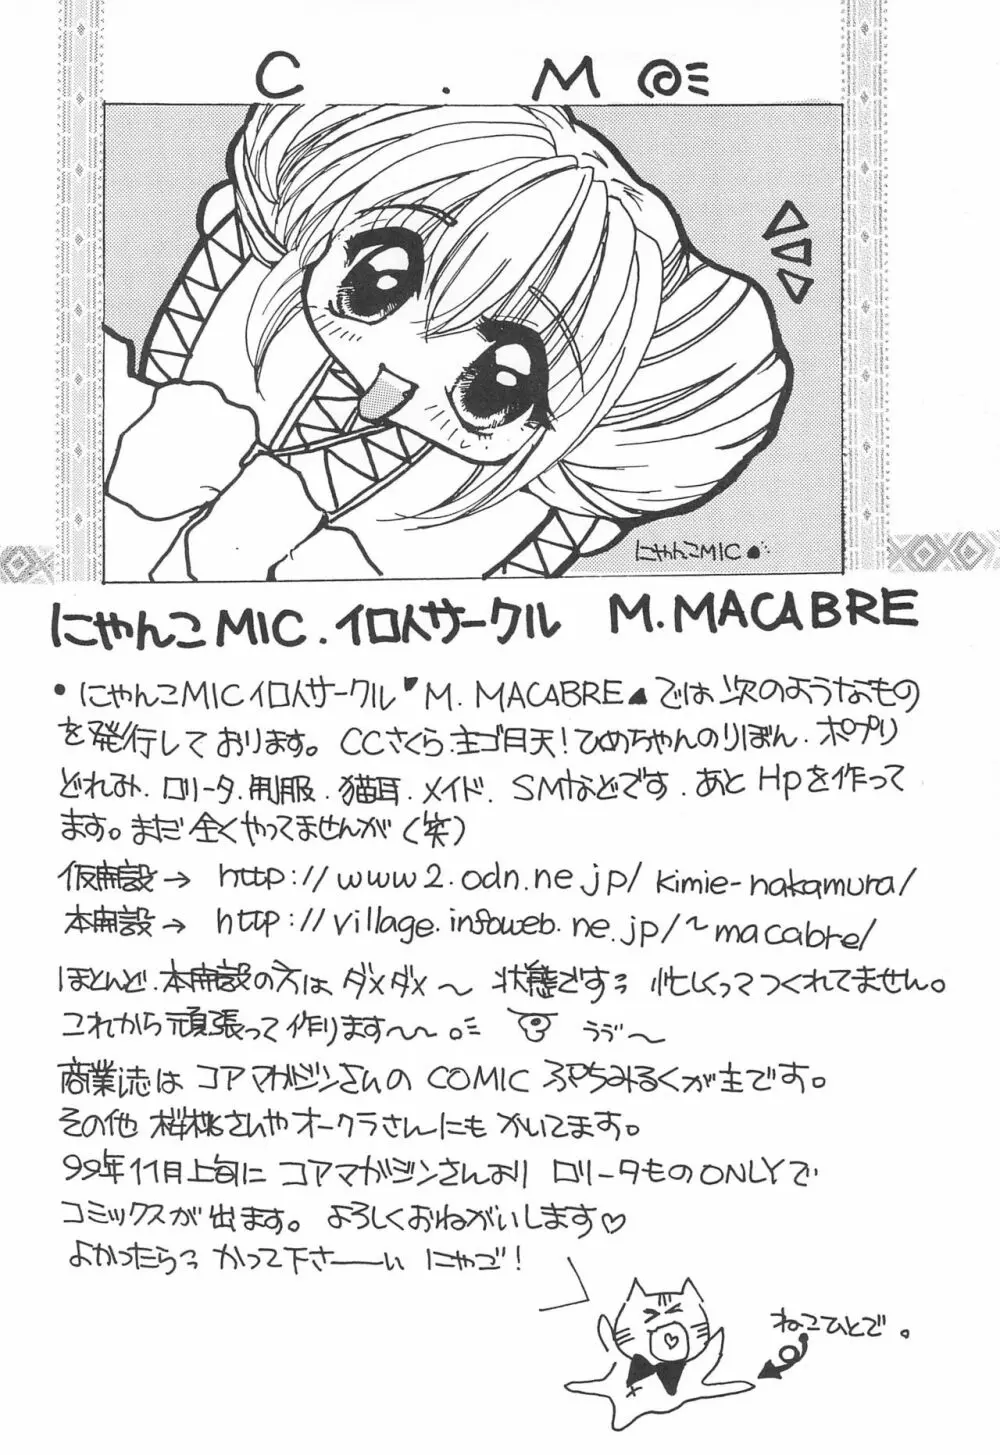 C . M
にゃんこMIC
にゃんこMIC.イロ人サークル M.MACABRE
・にゃんこMICイロ人サークル M. MACABRE では次のようなもの
を発行しております。CCさくら.主ゴ月天!ひめちゃんのりぼん.ポプリ
どれみ.ロリータ.制服.猫耳.メイド.SMなどです.あとHpを作って
ます。まだ全くやってませんが(笑)
仮開設→ http://www2.odn.ne.jp/kimie-nakamura/
本開設→ http://village.infoweb.ne.jp/~macabre/
ほとんど.本開設の方はダメダメ〜状態です 忙しくってつくれてません。
これから頑張って作ります〜〜。 うぅ〜
商業誌はコアマガジンさんのCOMICぷちみるくが主です。
その他桜桃さんやオークラさんにもかいてます。
99年11月上旬にコアマガジンさんよりロリータものONLYで
コミックスが出ます。よろしくおねがいします♡
よかったらっかって下さーーい にゃご!
ねこひとで。